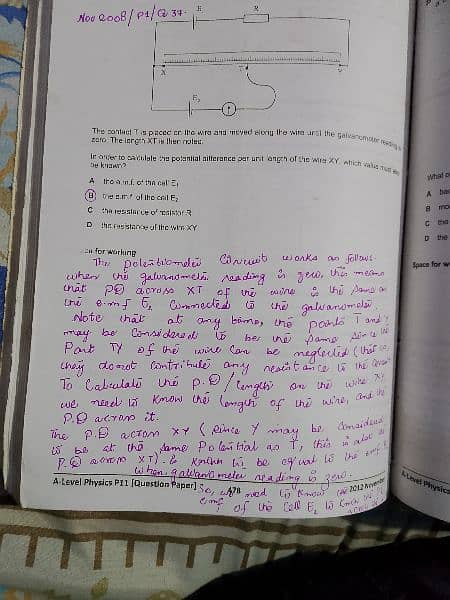 Nov 2008/P1/Q 37.
E₁
R
X
T
Y
E₂
The contact T is placed on the wire and moved along the wire until the galvanometer reading is
zero. The length XT is then noted.
In order to calculate the potential difference per unit length of the wire XY, which value must also
be known?
A the e.m.f. of the cell E₁
B the e.m.f. of the cell E₂
C the resistance of resistor R
D the resistance of the wire XY
for working
The potentiometer Circuit works as follows.
when the galvanometer reading is zero, this means
that P.D across XT of the wire is the same as
the e.m.f E₂ Connected to the galvanometer.
Note that at any time, the points T and Y
may be Considered to be the same since the
Part TY of the wire Can be neglected (that is,
they do not Contribute any resistance to the
To Calculate the P.D/length on the wire XY,
we need to Know the length of the wire, and the
P.D across it.
The P.D across XY (Since Y may be Considered
to be at the same Potential as T, this is also the
P.D across XT) is known to be equal to the emf E₂
when galvanometer reading is zero.
So, we need to Know the
emf of the Cell E₂ to know the
A-Level Physics P11 [Question Paper]
478
2012 November
What
A
B
C the
D the
Space for w
A-Level Physics